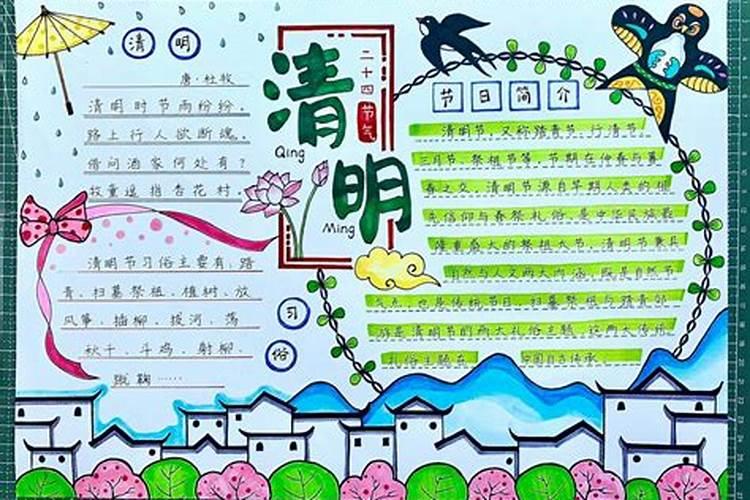 清明
唐·杜牧
清明时节雨纷纷,
路上行人欲断魂。
借问酒家何处有?
牧童遥指杏花村。
清明节习俗主要有:踏
青、扫墓祭祖、植树、放
风筝、插柳、拔河、荡
秋千、斗鸡、射柳、
蹴鞠……
习俗
二十四节气
清明
Qing
Ming
节日简介
清明节,又称踏青节、行清节、
三月节、祭祖节等,节期在仲春与暮
春之交。清明节源自早期人类的祖
先信仰与春祭礼俗,是中华民族最
隆重盛大的祭祖大节。清明节兼具
自然与人文两大内涵,既是自然节
气点,也是传统节日,扫墓祭祖与踏青郊
游是清明节的两大礼俗主题,这两大传统
礼俗主题在中国自古传承